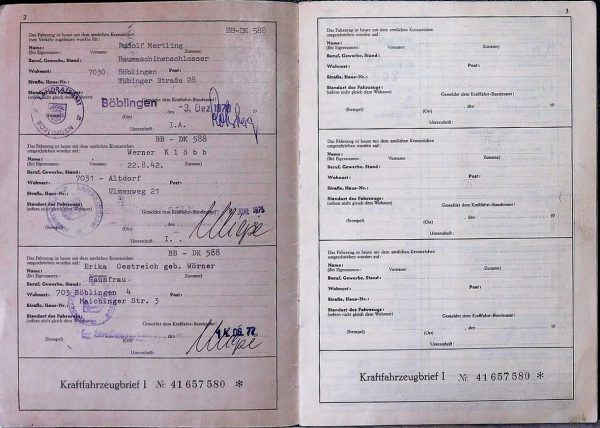 2
Das Fahrzeug ist heute mit dem amtlichen Kennzeichen
zum Verkehr zugelassen worden für:
BB-DK 588
Name: Rudolf Hertling
(Bei Eigennamen: Vorname Zuname)
Beruf, Gewerbe, Stand: Baumaschinenschlosser
Wohnort: 7030 Böblingen
Straße, Haus-Nr.: Tübinger Straße 28
(sofern nicht gleich dem Wohnort) Gemeldet dem Kraftfahrt-Bundesamt!
LANDRATSAMT BÖBLINGEN
Böblingen - 3. Dez. 19
(Stempel) (Ort)
Unterschrift: I.A.
Das Fahrzeug ist heute mit dem amtlichen Kennzeichen
umgeschrieben worden auf:
BB - DK 588
Name: Werner
(Bei Eigennamen: Vorname Zuname)
22.8.42.
Beruf, Gewerbe, Stand:
Wohnort: 7031 - Altdorf Post:
Straße, Haus-Nr.: Ulmenweg 21
Standort des Fahrzeugs:
(sofern nicht gleich dem Wohnort) Gemeldet dem Kraftfahrt-Bundesamt!
1975
(Stempel) (Ort)
Unterschrift: I.
Das Fahrzeug ist heute mit dem amtlichen Kennzeichen
umgeschrieben worden auf:
BB - DK 588
Name: Erika Oestreich geb. Wörner
(Bei Eigennamen: Vorname Zuname)
Beruf, Gewerbe, Stand: Hausfrau
Wohnort: 703 Böblingen 4 Post:
Straße, Haus-Nr.: Maichinger Str. 3
Standort des Fahrzeugs:
(sofern nicht gleich dem Wohnort) Gemeldet dem Kraftfahrt-Bundesamt!
06. 77
(Stempel) (Ort)
Unterschrift:
Kraftfahrzeugbrief I № 41657580 *
3
Das Fahrzeug ist heute mit dem amtlichen Kennzeichen
umgeschrieben worden auf:
Name:
(Bei Eigennamen: Vorname Zuname)
Beruf, Gewerbe, Stand:
Wohnort: Post:
Straße, Haus-Nr.:
Standort des Fahrzeugs:
(sofern nicht gleich dem Wohnort) Gemeldet dem Kraftfahrt-Bundesamt!
, den 19
(Stempel) (Ort)
Unterschrift:
Das Fahrzeug ist heute mit dem amtlichen Kennzeichen
umgeschrieben worden auf:
Name:
(Bei Eigennamen: Vorname Zuname)
Beruf, Gewerbe, Stand:
Wohnort: Post:
Straße, Haus-Nr.:
Standort des Fahrzeugs:
(sofern nicht gleich dem Wohnort) Gemeldet dem Kraftfahrt-Bundesamt!
, den 19
(Stempel) (Ort)
Unterschrift:
Das Fahrzeug ist heute mit dem amtlichen Kennzeichen
umgeschrieben worden auf:
Name:
(Bei Eigennamen: Vorname Zuname)
Beruf, Gewerbe, Stand:
Wohnort: Post:
Straße, Haus-Nr.:
Standort des Fahrzeugs:
(sofern nicht gleich dem Wohnort) Gemeldet dem Kraftfahrt-Bundesamt!
, den 19
(Stempel) (Ort)
Unterschrift:
Kraftfahrzeugbrief I № 41657580 *